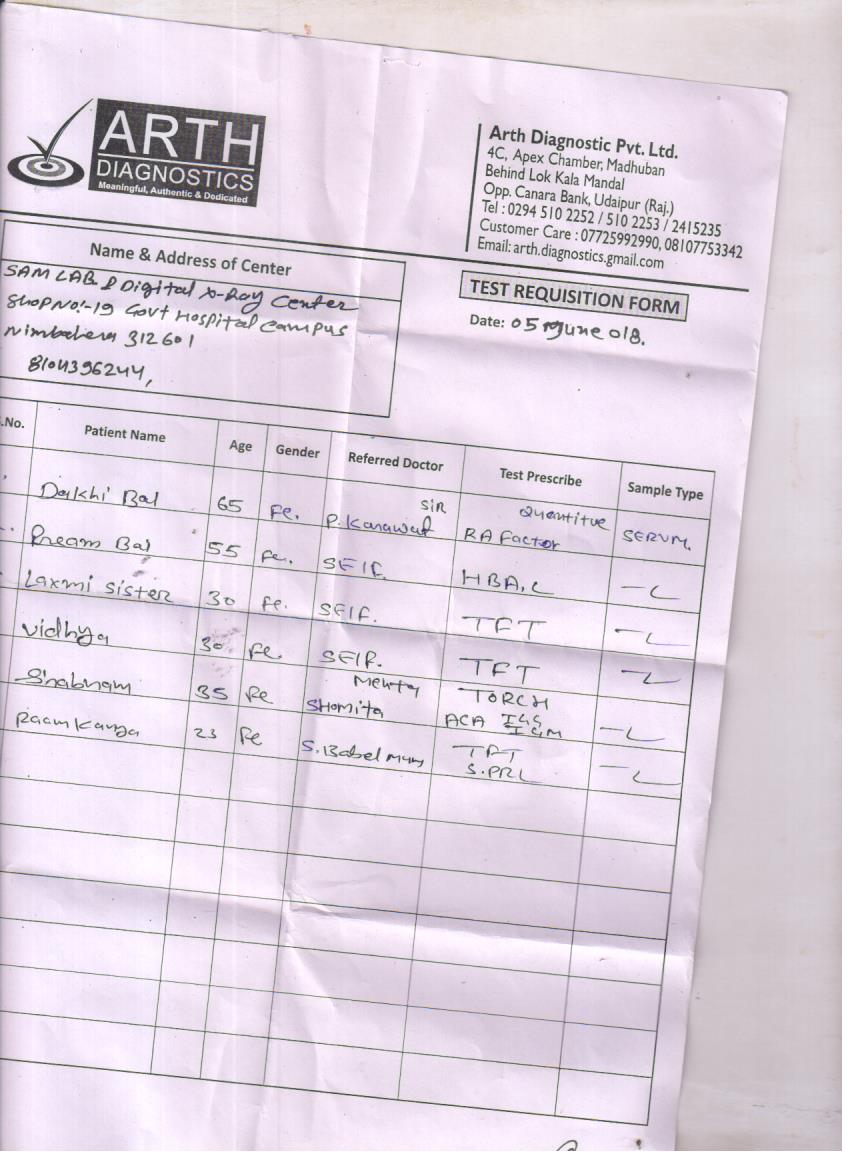 ARTH
DIAGNOSTICS
Meaningful, Authentic & Dedicated
Arth Diagnostic Pvt. Ltd.
4C, Apex Chamber, Madhuban
Behind Lok Kala Mandal
Opp. Canara Bank, Udaipur (Raj.)
Tel : 0294 510 2252 / 510 2253 / 2415235
Customer Care : 07725992990, 08107753342
Email: arth.diagnostics.gmail.com
Name & Address of Center
SAM LAB & Digital X-Ray Center
Shop No:-19 Govt Hospital Campus
Nimbahera 312601
8104396244,
TEST REQUISITION FORM
Date: 05 June 018.
.No. Patient Name Age Gender Referred Doctor Test Prescribe Sample Type
Dakhi Bai 65 Fe. P. Karawat SIR Quantitve RA Factor SERUM.
Pream Bai 55 Fe. SElF. HBA,C
Laxmi Sister 30 Fe. SElF. TFT
Vidhya 30 Fe. SElF. TFT
Shabnam 35 Fe Mehta SHomita TORCH ACA IGG IGM
Raamkanya 23 Fe S. Babel Mam TFT S.PRL